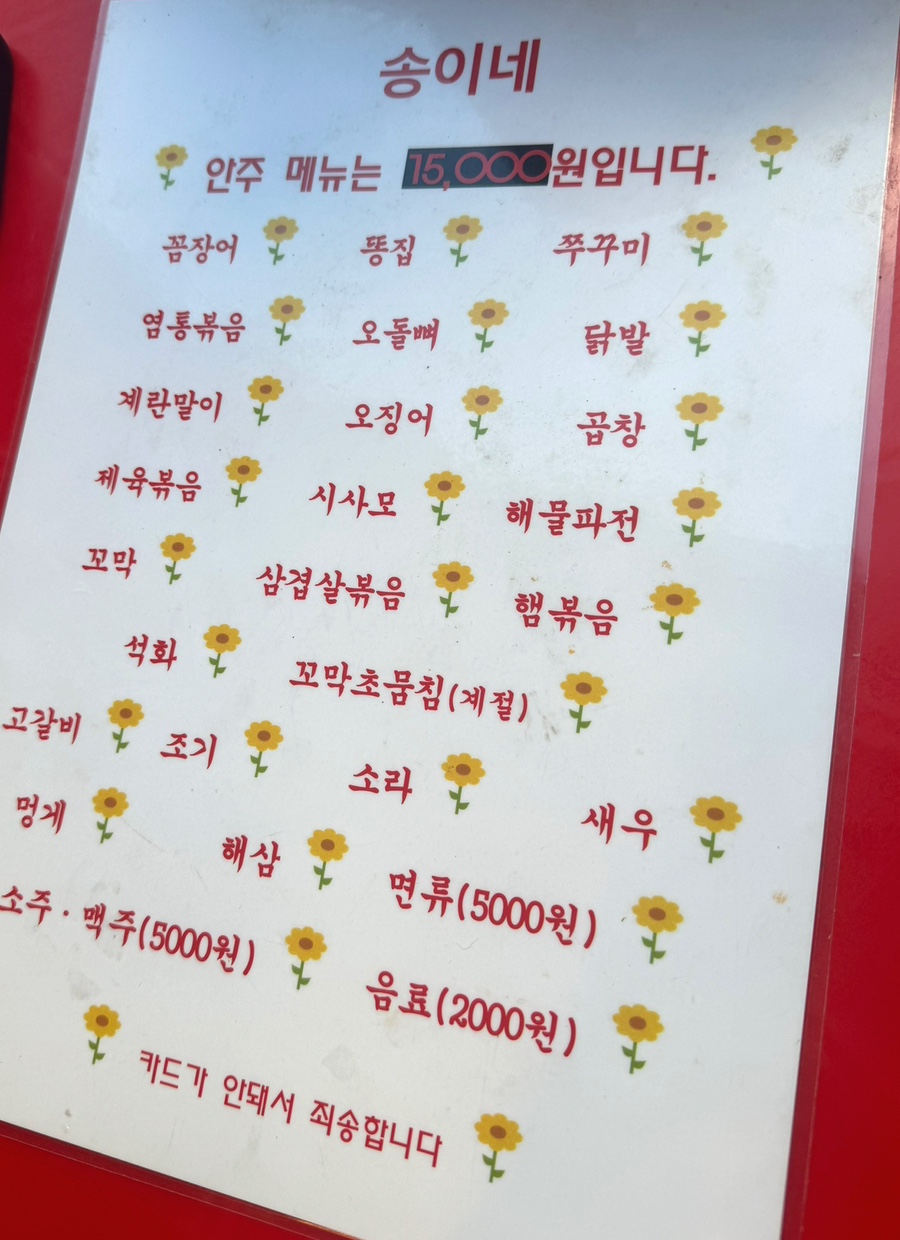 송이네
안주 메뉴는 15,000원입니다.
꼼장어 똥집 쭈꾸미
염통볶음 오돌뼈 닭발
계란말이 오징어 곱창
제육볶음 시사모 해물파전
꼬막 삼겹살볶음 햄볶음
석화 꼬막초뭄침(계절)
고갈비 조기 소라 새우
멍게 해삼 면류(5000원)
소주·맥주(5000원) 음료(2000원)
카드가 안돼서 죄송합니다